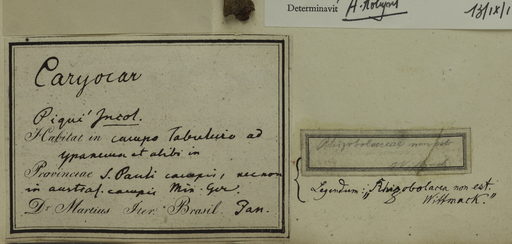 Determinavit
13/IX/1
Caryocar
Piqui Incol.
Habitat in campo Tabuleiro ad
Ypanema et alibi in
Provinciae S. Pauli campis, nec non
in austral. campis Min. Ger.
Dr Martius Iter Brasil. Jan.
Rhizobolaceae non est
Legendum: „Rhizobolacea non est.
Wittmack."